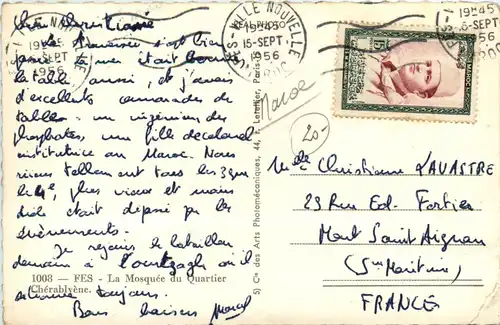 Chère Christiane
La traversée s'est bien
passée la mer était bonne
la table aussi, et j'avais
d'excellents camarades de
tables - un ingénieur des
phosphates, une fille de colonel
institutrice au Maroc. Nous
rions tellement tous les 3 que
le 4e, plus vieux et moins
drôle était dépassé par les
évènements.
Je rejoins le bataillon
demain à l'ourtzagh où il
se trouve toujours.
Bons baisers Marcel
1008 — FES - La Mosquée du Quartier
Chérablyène.
5) Cie des Arts Photomécaniques, 44, r. Letellier, Paris
FES-VILLE NOUVELLE
MAROC
19H45
15-SEPT
1956
19H45
15-SEPT
1956
19H45
15-SEPT
56
15F
MAROC
Maroc
20-
Mlle Christiane LAVASTRE
23 Rue Ed. Fortier
Mont Saint Aignan
(Sne Maritime)
FRANCE